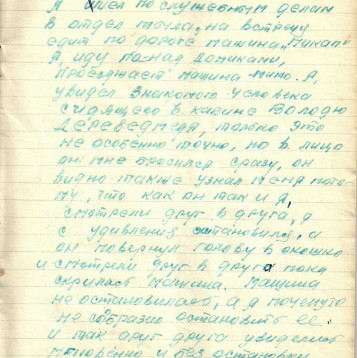 Я шел по служебным делам
в отдел тогда, на встречу
едит по дороге машина "Пикап"
Я, иду по-над домиками,
проезжает машина мимо. Я,
увидел знакомого человека
сидящего в кабине Володю
Дереведмедя, только это
не особенно точно, но в лицо
он мне бросился сразу, он
видно также узнал меня пото
му, что как он так и я,
смотрели друг в друга, я
с удивления остановился, и
он повернул голову в окошко
и смотрели друг в друга пока
скрилась машина. Машина
не остановилась, а я почемуто
не сообразил остановить ее.
И так друг друга увиделись
мгновенно и без остановки